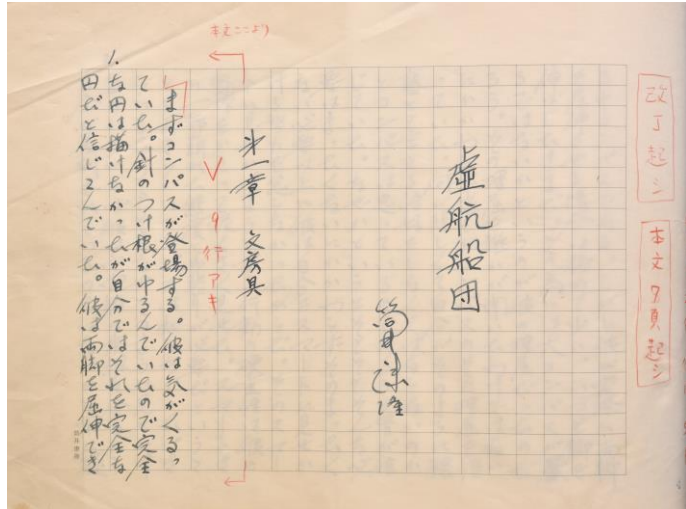 改丁起シ
本文7頁起シ
虚航船団
筒井康隆
本文ここより
第一章 文房具
9行アキ
まずコンパスが登場する。彼は気がくるっ
ていた。針のつけ根がゆるんでいたので完全
な円は描けなかったが自分ではそれを完全な
円だと信じこんでいた。彼は両脚を屈伸でき
1.